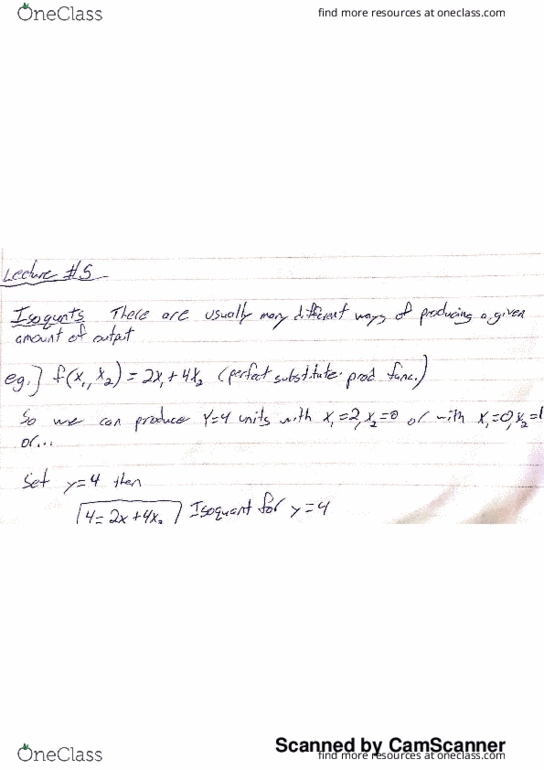 OneClass
find more resources at oneclass.com
Lecture #5
Isoquants There are usually many different ways of producing a given
amount of output
eg.] f(x₁, x₂) = 2x₁ + 4x₂ (perfect substitute prod func.)
So we can produce Y=4 units with x₁=2, x₂=0 or with x₁=0, x₂=1
or...
Set y=4 then
4=2x+4x₂ Isoquant for y=4
Scanned by CamScanner
OneClass
find more resources at oneclass.com